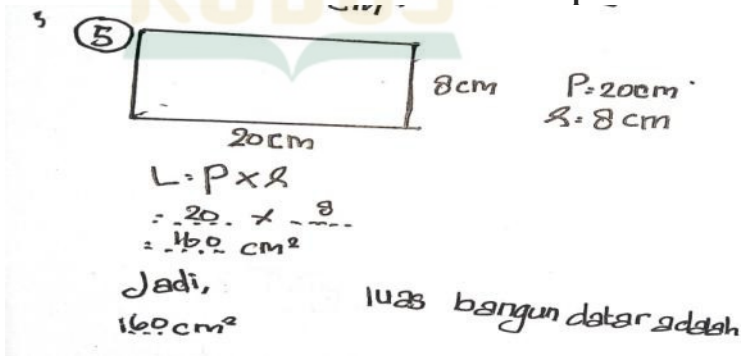 5
8cm
P=20cm
l=8cm
20cm
L=P×l
= 20 × 8
= 160 cm²
Jadi, luas bangun datar adalah
160cm²